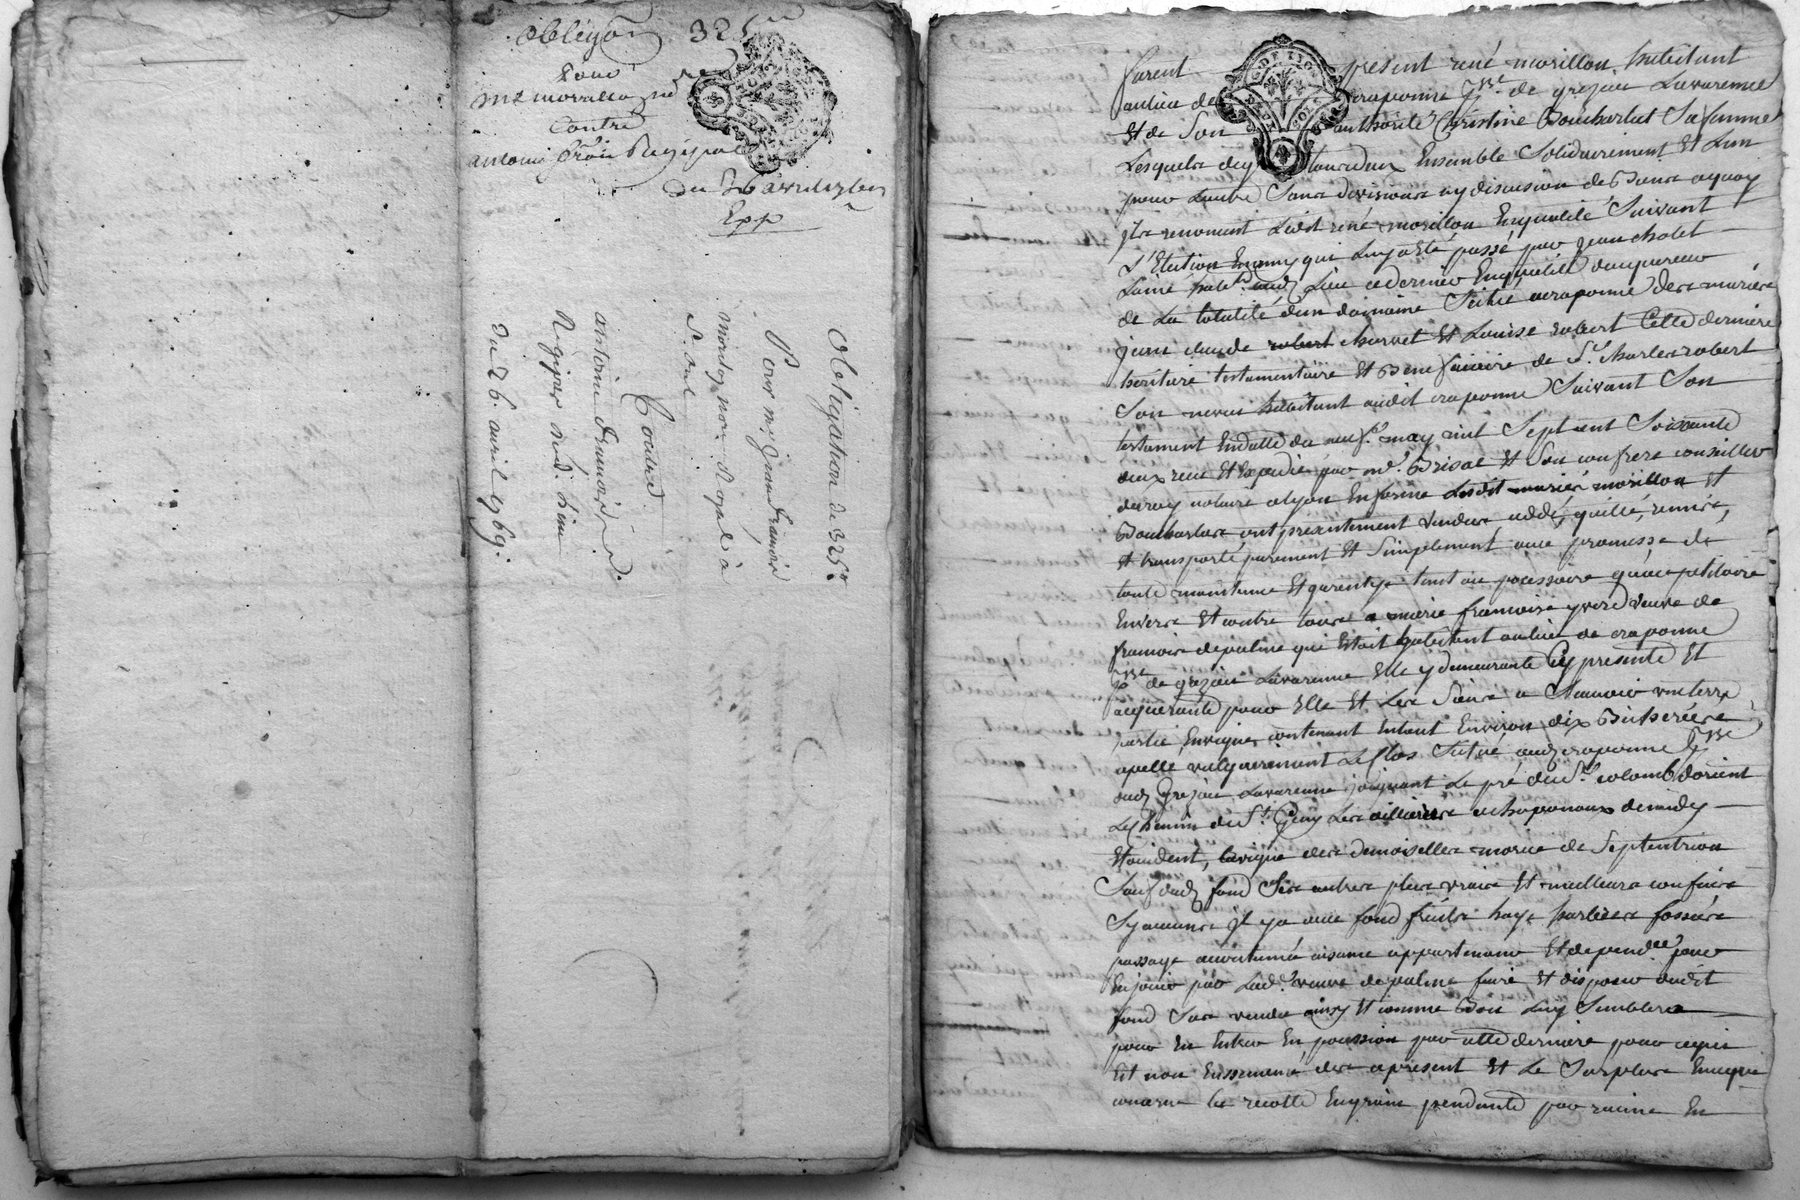 obligaon 325tt
pour
me
contre
antoine
du 26 avril 1769
Exp
Obligation de 325tt
Pour me Jean François
montagnon Royal a
Contre
antoine François
du 26. avril 1769.
furent present rené morillon habitant
au lieu de craponne psse de grezieu Lavarenne
Et de Son authorité Christine Boucharlat Sa femme
Lesquels de gré tous deux Ensemble Solidairement Et L'un
pour Lautre Sans division ny discussion de Biens a quoy
Ils renoncent Ledit rené morillon En qualité Suivant
L'Election En amy qui Luy a Eté passé par Jean cholet
Lainé habt. aud Lieu ce dernier En qualité dacquereur
de La totalité d'un domaine Scitué a craponne des mariés
jean claude robert charvet Et Louise robert Cette derniere
heritiere testamentaire Et de Sr. Charles robert
Son neveu habitant audit craponne Suivant Son
testament En datte du neuf may mil Sept cent Soixante
deux recu Et Expedié par me. Brisac Et Son confrere conseiller
du roy notaire a lyon En forme Lesdits mariés morillon Et
Boucharlat ont presentement vendu, cedé, quitté, remis,
Et transporté purement Et Simplement avec promesse de
toute maintenue Et garentye tant au possessoire qu'au petitoire
Envers Et contre tous a marie francoise yverd veuve de
francois depalme qui Etoit habitant au lieu de craponne
psse de grezieu Lavarenne Elle y demeurante Cy presente Et
acquerante pour Elle Et Les Siens a Scavoir un terre
partie En vigne contenant En tout Environ dix Bicherées
apellé vulgairement Le Clos Scitué aud craponne psse
dud Grezieu Lavarenne joignant Le pré du Sr. colomb dorient
Le chemin de St. Geny Les a chaponaux de midy
Et occident, La vigne des demoiselles morice de Septentrion
Sauf dud fond Ses autres plus vrais Et meilleurs confins
Sy aucuns Il y a avec fond fruits haye fossés
passage accoutumé aisance appartenance Et dependce pour
En jouir par Lade. veuve depalme faire Et disposer dudit
fond Sus vendu ainsy Et comme Bon Luy Semblera
pour En Entrer En possession par cette derniere pour ce qui
Est non Ensemencé des a present Et Le Surplus En ce qui
concerne la recolte En grain pendante par racine En